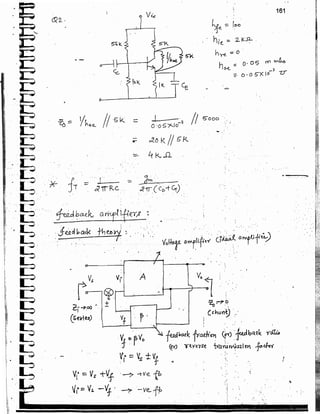 161
Q2.
Vcc
hfe = 100
hie = 2KΩ
hre = 0
hoe = 0.05 m mho
= 0.05×10⁻³ ℧
55k
5k
1/hoe
5k
Cc
1k
CE
Z0 = 1/hoe // 5k = 1/0.05×10⁻³ // 5000
= 20K // 5k
= 4kΩ
* fT = 1/2πRC = gm/2π(
feedback amplifiers :
feedback theory :
Voltage amplifier (ideal amplifier)
Vs
Vi
A
Vo
Zi→∞
(Series)
±
Vf
β
Z0→0
(shunt)
Vf = βVo
feedback fraction (or) feedback ratio
(or) reverse transmission factor
Vi = Vs ± Vf
Vi = Vs + Vf → +ve fb
Vi = Vs - Vf → -ve fb